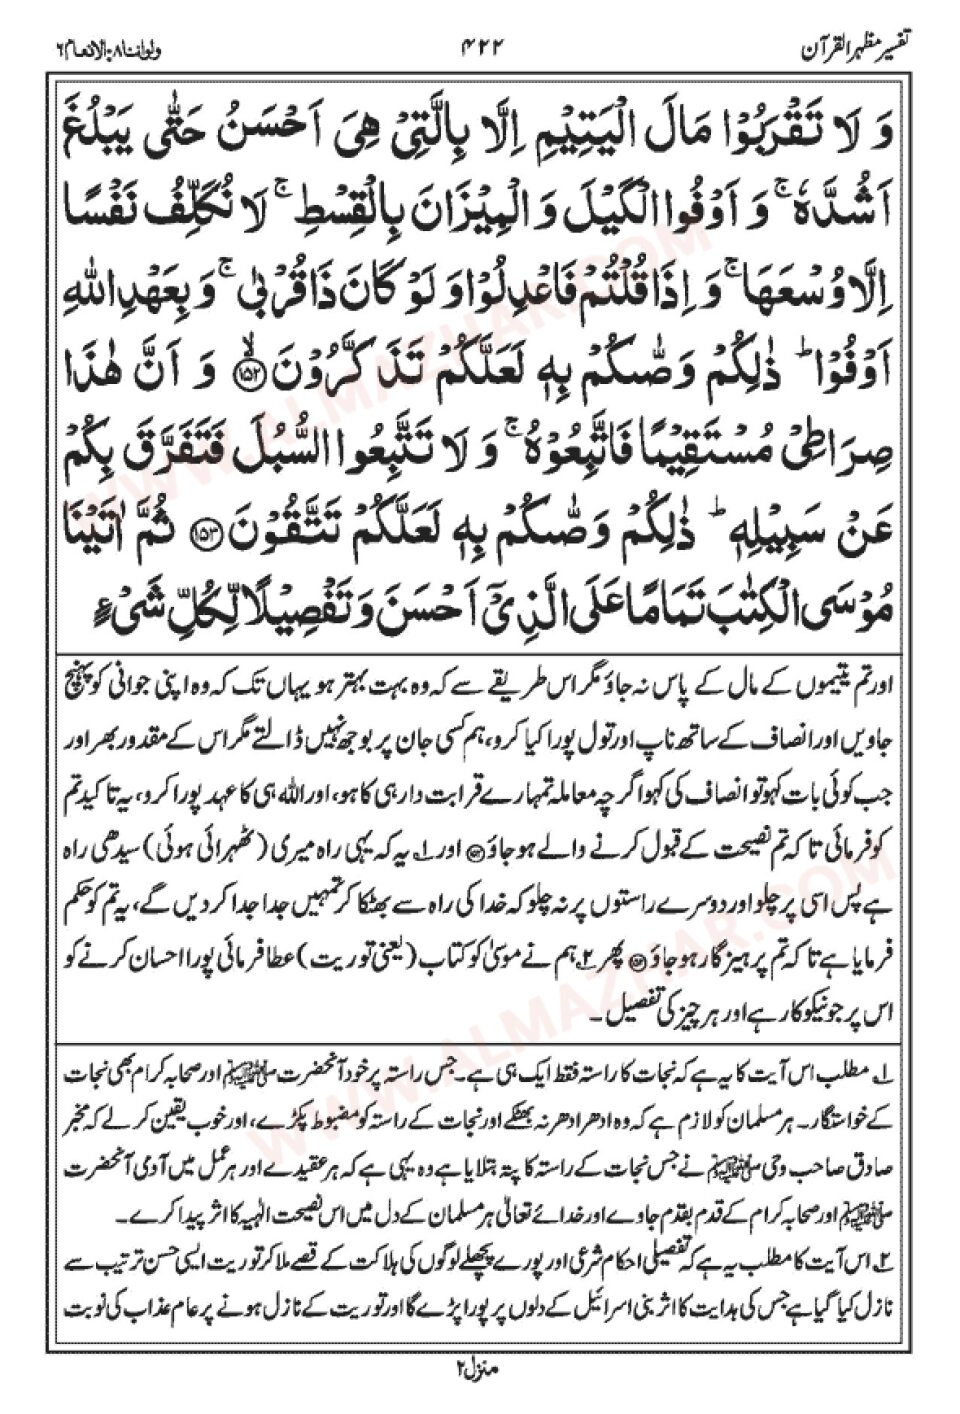 تفسیر مظہر القرآن
۴۲۲
ولوانـنا ۸: الانعام ۶
وَ لَا تَقْرَبُوْا مَالَ الْيَتِيْمِ اِلَّا بِالَّتِيْ هِيَ اَحْسَنُ حَتّٰى يَبْلُغَ
اَشُدَّهٗ ۚ وَ اَوْفُوا الْكَيْلَ وَ الْمِيْزَانَ بِالْقِسْطِ ۚ لَا نُكَلِّفُ نَفْسًا
اِلَّا وُسْعَهَا ۚ وَ اِذَا قُلْتُمْ فَاعْدِلُوْا وَ لَوْ كَانَ ذَا قُرْبٰى ۚ وَ بِعَهْدِ اللّٰهِ
اَوْفُوْا ؕ ذٰلِكُمْ وَصّٰىكُمْ بِهٖ لَعَلَّكُمْ تَذَكَّرُوْنَ ۙ﴿۱۵۲﴾ وَ اَنَّ هٰذَا
صِرَاطِيْ مُسْتَقِيْمًا فَاتَّبِعُوْهُ ۚ وَ لَا تَتَّبِعُوا السُّبُلَ فَتَفَرَّقَ بِكُمْ
عَنْ سَبِيْلِهٖ ؕ ذٰلِكُمْ وَصّٰىكُمْ بِهٖ لَعَلَّكُمْ تَتَّقُوْنَ ﴿۱۵۳﴾ ثُمَّ اٰتَيْنَا
مُوْسَى الْكِتٰبَ تَمَامًا عَلَى الَّذِيْۤ اَحْسَنَ وَ تَفْصِيْلًا لِّكُلِّ شَيْءٍ
اور تم یتیموں کے مال کے پاس نہ جاؤ مگر اس طریقے سے کہ وہ بہت بہتر ہو یہاں تک کہ وہ اپنی جوانی کو پہنچ
جاویں اور انصاف کے ساتھ ناپ اور تول پورا کیا کرو، ہم کسی جان پر بوجھ نہیں ڈالتے مگر اس کے مقدور بھر اور
جب کوئی بات کہو تو انصاف کی کہو اگرچہ معاملہ تمہارے قرابت دار ہی کا ہو، اور اللہ ہی کا عہد پورا کرو، یہ تاکید تم
کو فرمائی تاکہ تم نصیحت کے قبول کرنے والے ہو جاؤ ﴿۱۵۲﴾ اور ۱؎ یہ کہ یہی راہ میری (ٹھہرائی ہوئی) سیدھی راہ
ہے پس اسی پر چلو اور دوسرے راستوں پر نہ چلو کہ خدا کی راہ سے بھٹکا کر تمہیں جدا جدا کر دیں گے، یہ تم کو حکم
فرمایا ہے تاکہ تم پرہیزگار ہو جاؤ ﴿۱۵۳﴾ پھر ۲؎ ہم نے موسیٰ کو کتاب (یعنی توریت) عطا فرمائی پورا احسان کرنے کو
اس پر جو نیکوکار ہے اور ہر چیز کی تفصیل۔
۱؎ مطلب اس آیت کا یہ ہے کہ نجات کا راستہ فقط ایک ہی ہے۔ جس راستہ پر خود آنحضرت ﷺ اور صحابہ کرام بھی نجات
کے خواستگار۔ ہر مسلمان کو لازم ہے کہ وہ ادھر ادھر نہ بھٹکے اور نجات کے راستہ کو مضبوط پکڑے، اور خوب یقین کر لے کہ مخبر
صادق صاحب وحی ﷺ نے جس نجات کے راستہ کا پتہ بتلایا ہے وہ یہی ہے کہ ہر عقیدے اور ہر عمل میں آدمی آنحضرت
ﷺ اور صحابہ کرام کے قدم بقدم جاوے اور خدائے تعالیٰ ہر مسلمان کے دل میں اس نصیحت الٰہیہ کا اثر پیدا کرے۔
۲؎ اس آیت کا مطلب یہ ہے کہ تفصیلی احکام شرعی اور پورے پچھلے لوگوں کی ہلاکت کے قصے ملا کر توریت ایسی حسن ترتیب سے
نازل کیا گیا ہے جس کی ہدایت کا اثر بنی اسرائیل کے دلوں پر پورا پڑے گا اور توریت کے نازل ہونے پر عام عذاب کی نوبت
منزل ۲
WWW.ALMAZHAR.COM
WWW.ALMAZHAR.COM